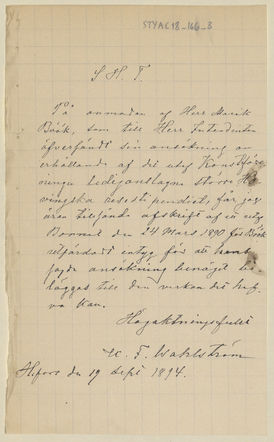 STYAC18-166-3
S. H. T.
På anmodan af Herr Maurik
Böök, som till Herr Intendenten
öfversändt sin ansökning om
erhållande af det utaf Konstföre
ningen lediganslagna större
resestipendiet, får jag
ären tillsända afskrift af
Bonnat den 24 Mars 1890 för Böök
utfärdadt intyg för att
sagde ansökning benäget bi-
läggas till den verkan det haf-
va kan.
Högaktningsfullt
C. F. Wahlström
H:fors den 19 Sept 1894.